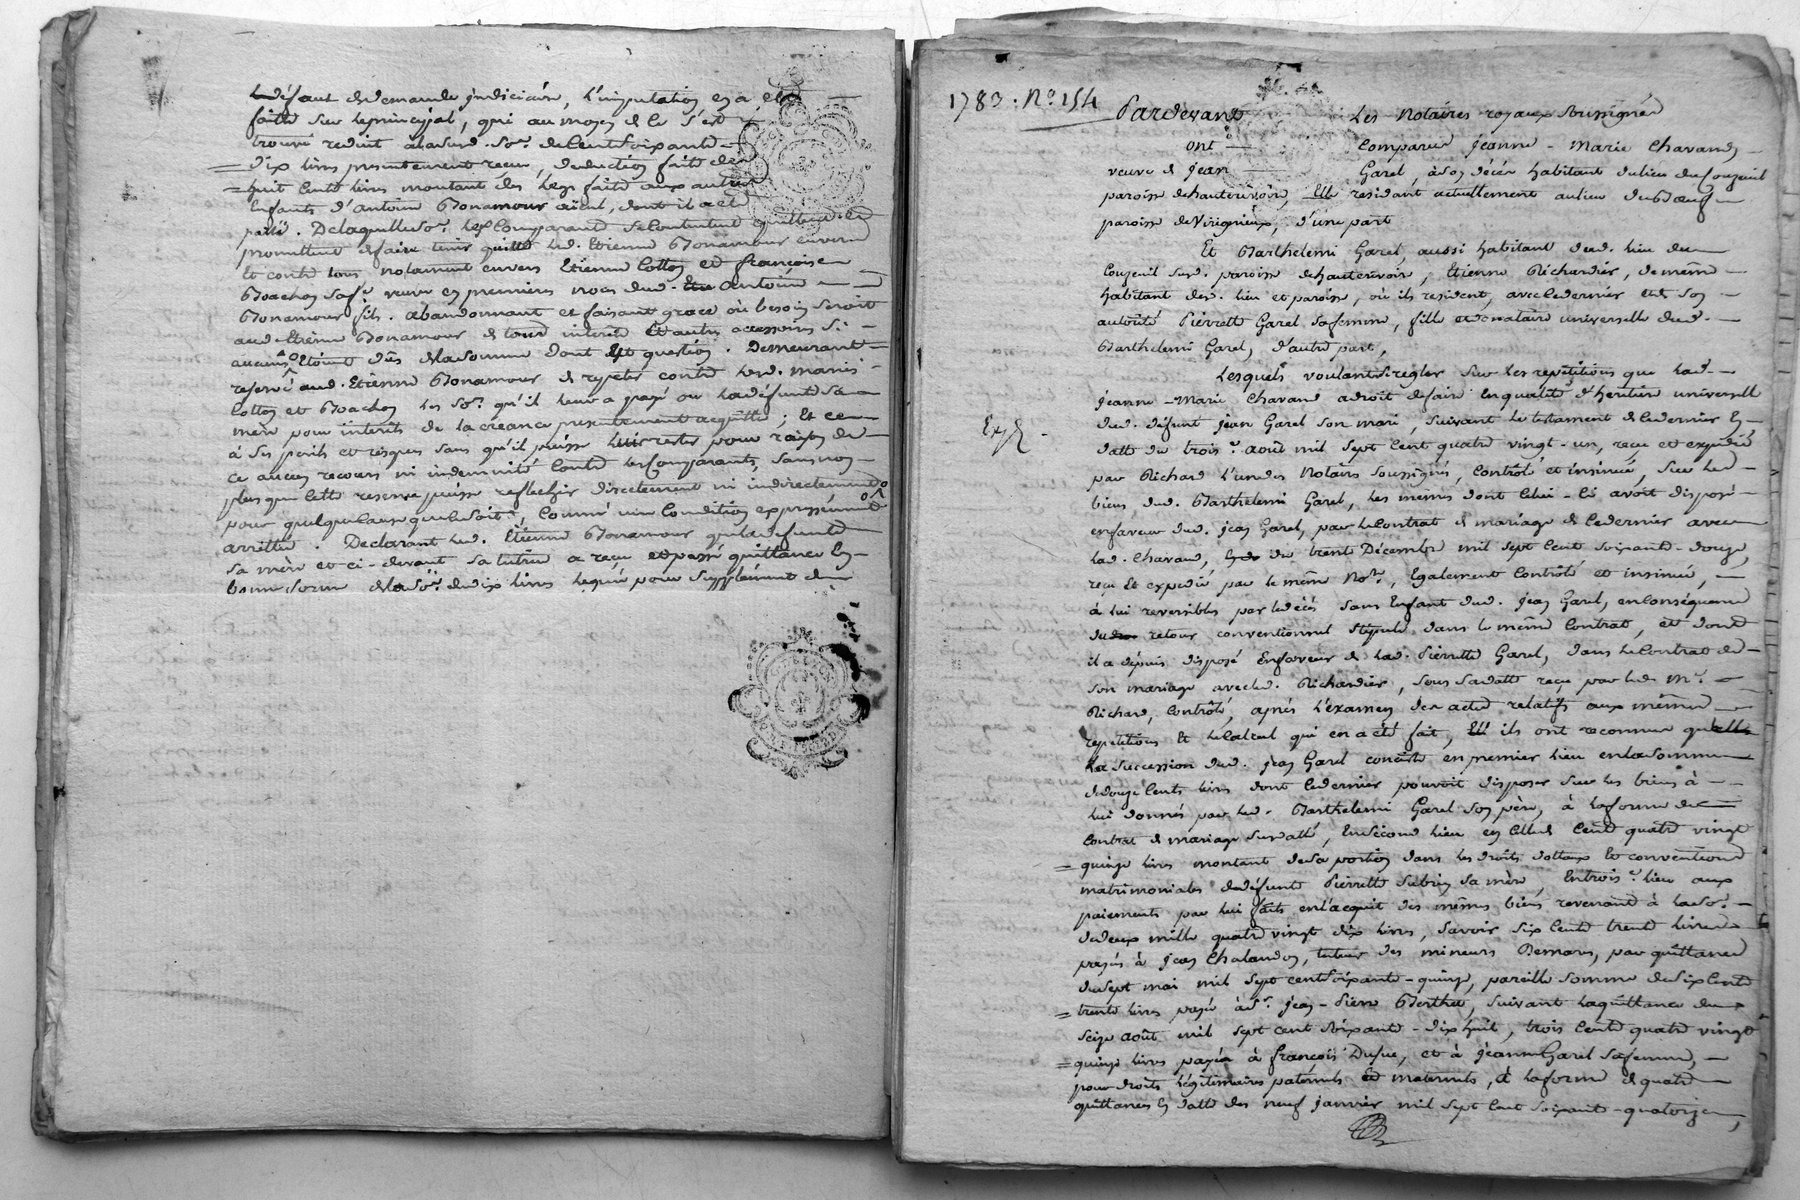 defaut de demande judiciaire, l'imputation en a été
faite sur le principal, qui au moyen de ce s'est
trouvé reduit à la susd. So.e de Cent Soixante
dix livres presentement reçue, deduction faite des
huit Cents livres montant des legs faits aux autres
Enfants d'antoine Bonamour aieul, dont il a été
parlé. De laquelle So.e les Comparants se Contentent quittent et
promettent de faire tenir quitte led. Etienne Bonamour envers
Et contre tous notament envers Etienne Cotton et françoise
Boachon sa fe. veuve en premieres noces dud. antoine
Bonamour fils. abandonnant et faisant grace où besoin seroit
aud. Etienne Bonamour de tous interets Et autres accessoires si
aucuns Etoient dûs de la somme dont Est question. Demeurant
reservé aud. Etienne Bonamour de repeter contre lesd. mariés
Cotton et Boachon les So.es qu'il leur a payé ou la défunte sa
mere pour interets de la créance presentement acquittée; Et ce
à ses perils et risques sans qu'il puisse rester pour raison de
ce aucun recours ni indemnité Contre les Comparants, sans non
plus que Cette reserve puisse reflechir directement ni indirectement
pour quelque Cause que ce soit, comme une Condition expressement
arrêtée. Declarant led. Etienne Bonamour que la défunte
sa mere et ci-devant sa tutrice a reçu et passé quittance En
bonne forme de la So.e de dix livres leguée pour supplément de
1783. N.o 154
Pardevant Les Notaires royaux soussignés
ont Comparus jeanne-Marie Chavand
veuve de jean Garel, à son décès habitant du lieu du Couzeuil
paroisse de hauterivoire, Elle residant actuellement au lieu du Bœuf
paroisse de Virignieux, d'une part
Et Barthelemi Garel, aussi habitant dud. lieu du
Couzeuil susd. paroisse de hauterivoire, Etienne Richardier, de même
habitant desd. lieu et paroisse, où ils resident, avec ce dernier et de son
autorité Pierrette Garel sa femme, fille et donataire universelle dud.
Barthelemi Garel, d'autre part,
Lesquels voulant se regler sur les repetitions que lad.
jeanne-Marie Chavand a droit de faire En qualité d'heritiere universelle
Exp.
dud. défunt jean Garel son mari, suivant le testament de ce dernier En
datte du trois août mil sept Cent quatre vingt-un, reçu et expedié
par Richard l'un des Notaires soussignés, Contrôlé et insinué, sur les
biens dud. Barthelemi Garel, les memes dont Celui-ci avoit disposé
en faveur dud. jean Garel, par le Contrat de mariage de ce dernier avec
lad. Chavand, du trente Décembre mil sept Cent soixante-douze,
reçu Et expedié par le même No.re, Egalement Contrôlé et insinué,
à lui reversibles par le décès sans Enfant dud. jean Garel, en Conséquence
du retour conventionnel stipulé dans le même Contrat, et dont
il a depuis disposé En faveur de lad. Pierrette Garel, dans le Contrat de
son mariage avec led. Richardier, sous sa datte reçu par led. M.e
Richard, Contrôlé, après l'examen des actes relatifs aux mêmes
repetitions Et le Calcul qui en a été fait, ils ont reconnu que
La succession dud. jean Garel consiste en premier lieu en la somme
de douze Cents livres dont ce dernier pouvoit disposer sur les biens à
lui donnés par led. Barthelemi Garel son père, à la forme du
Contrat de mariage susdatté, En second lieu en Celle de Cent quatre vingt
quinze livres montant de sa portion dans les droits dottaux Et conventions
matrimoniales de défunte Pierrette Subrin sa mère, En trois.e lieu aux
paiements par lui faits en l'acquit des mêmes biens revenant à la So.e
de deux mille quatre vingt dix livres, savoir six Cents trente livres
payés à jean Chalandon, tuteur des mineurs Bernard, par quittance
du sept mai mil sept cent soixante-quinze, pareille somme de six Cents
trente livres payé à S.r jean-Pierre Berthet, suivant la quittance du
seize août mil sept cent soixante-dix huit, trois Cents quatre vingt
quinze livres payés à françois Dusuc, et à jeanne Garel sa femme,
pour droits légitimaires paternels et maternels, à la forme de quatre
quittances en datte des neuf janvier mil sept Cent soixante-quatorze,